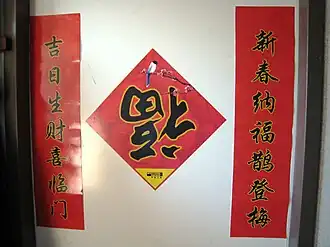 新春纳福鹊登梅
福
吉日生财喜临门